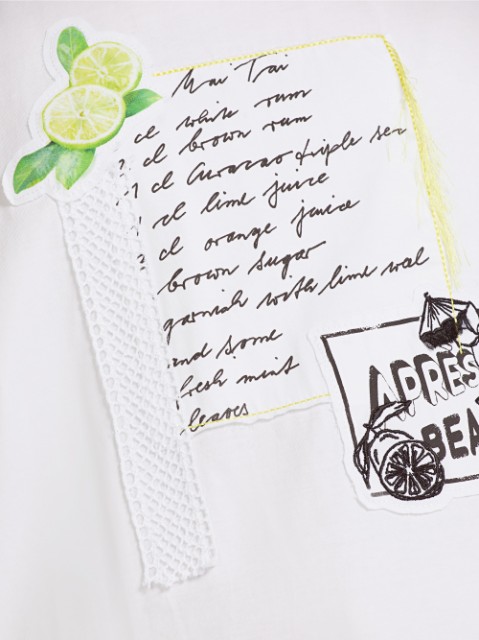 Mai Tai
cl white rum
cl brown rum
cl Curacao triple sec
cl lime juice
cl orange juice
brown sugar
garnish with lime
and some
fresh mint
leaves
APRÈS
BEA